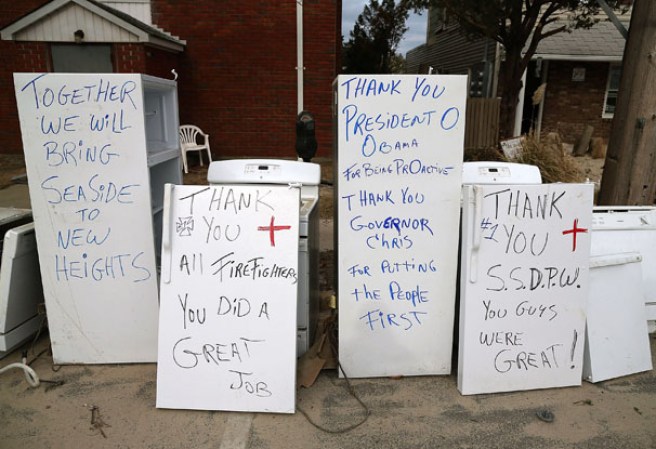 TOGETHER
WE WILL
BRING
SEASIDE
TO
NEW
HEIGHTS
THANK
YOU
All FIREFIGHTERS
YOU DID A
GREAT
JOB
THANK YOU
PRESIDENT O
OBAMA
FOR BEING PROACTIVE
THANK YOU
GOVERNOR
CHRIS
FOR PUTTING
the PEOPLE
FIRST
THANK
#1 YOU
S.S.D.P.W.
YOU GUYS
WERE
GREAT!